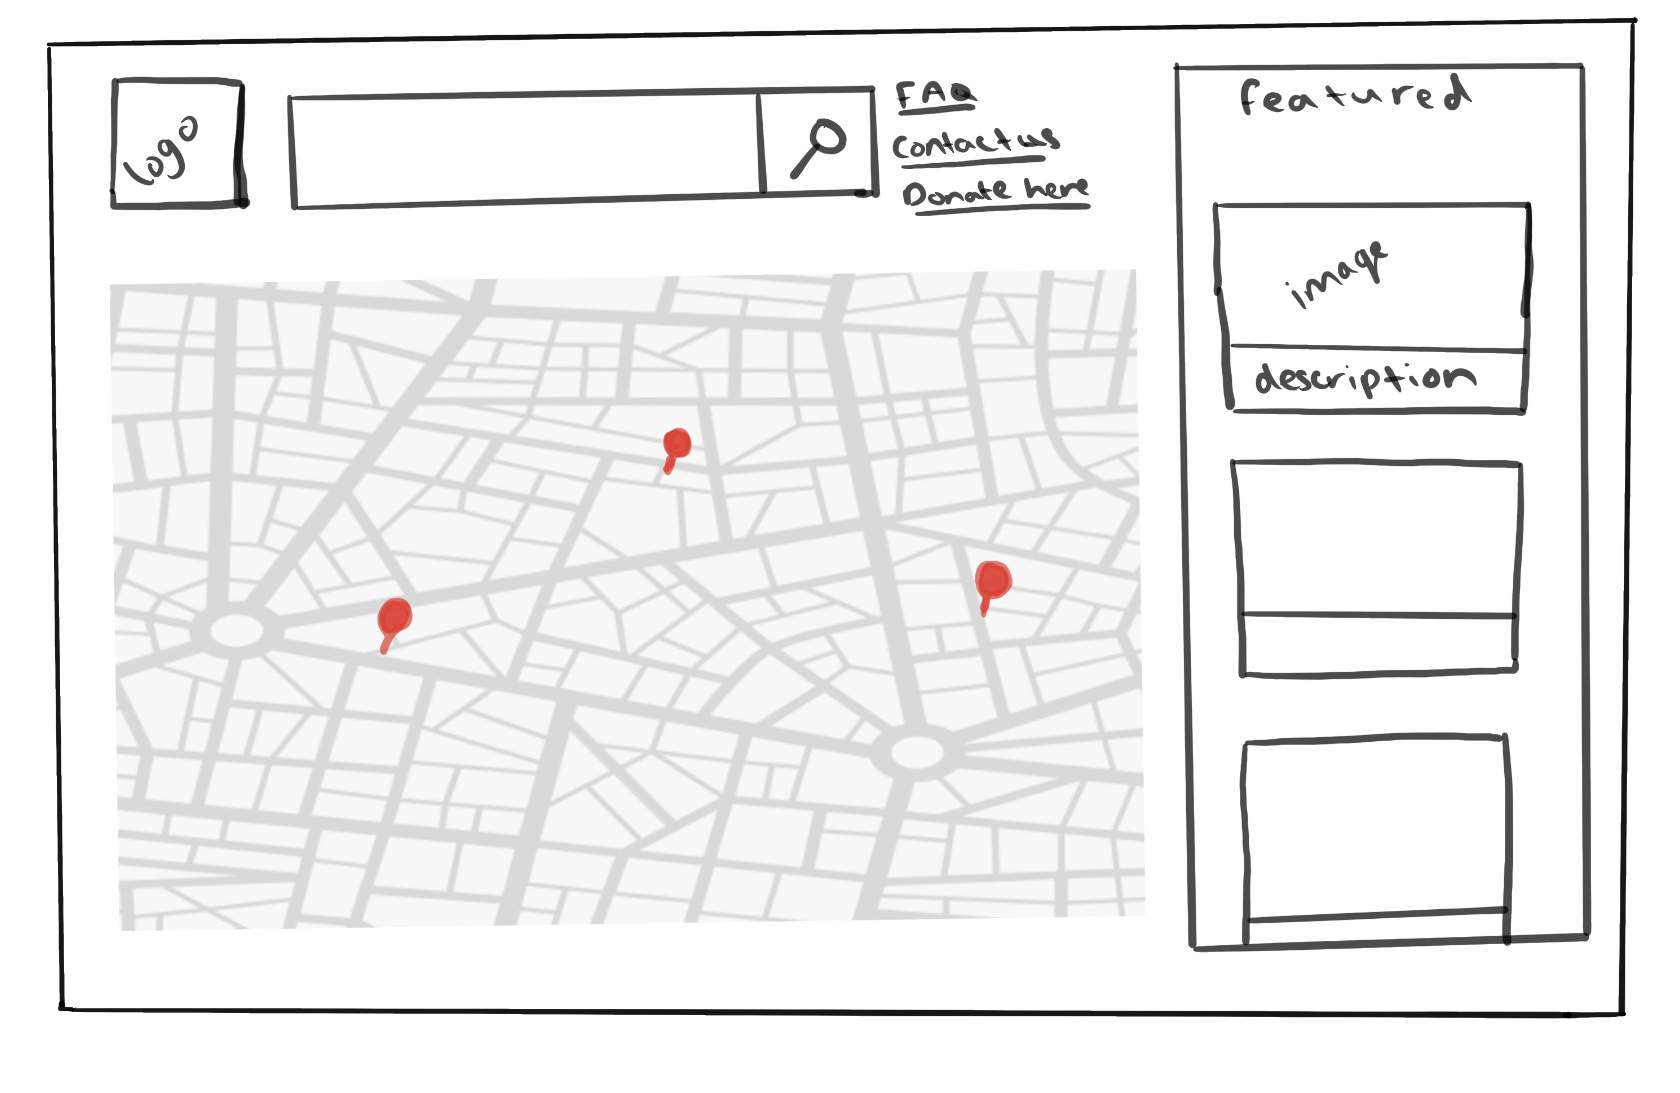 logo
FAQ
Contact us
Donate here
featured
image
description